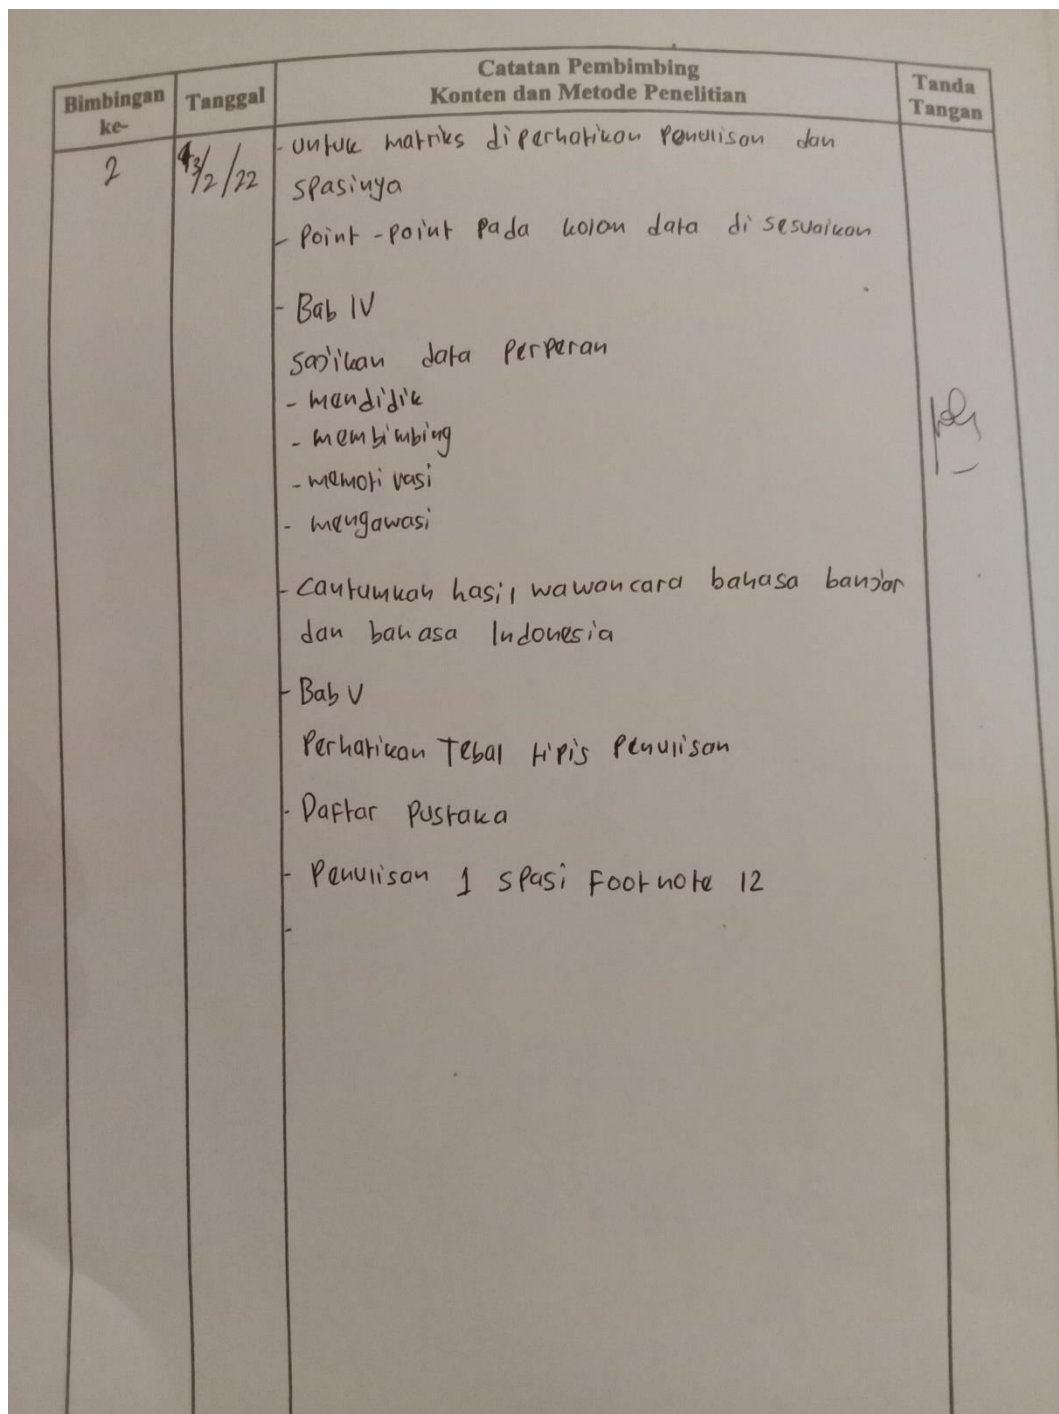 Bimbingan ke-
Tanggal
Catatan Pembimbing
Konten dan Metode Penelitian
Tanda Tangan
2
/2/22
- untuk matriks diperhatikan penulisan dan
spasinya
- Point-point pada kolon data disesuaikan
- Bab IV
sajikan data perperan
- mendidik
- membimbing
- memotivasi
- mengawasi
- cantumkan hasil wawancara bahasa banjar
dan bahasa Indonesia
- Bab V
Perhatikan Tebal tipis Penulisan
- Daftar Pustaka
- Penulisan 1 spasi Footnote 12
-